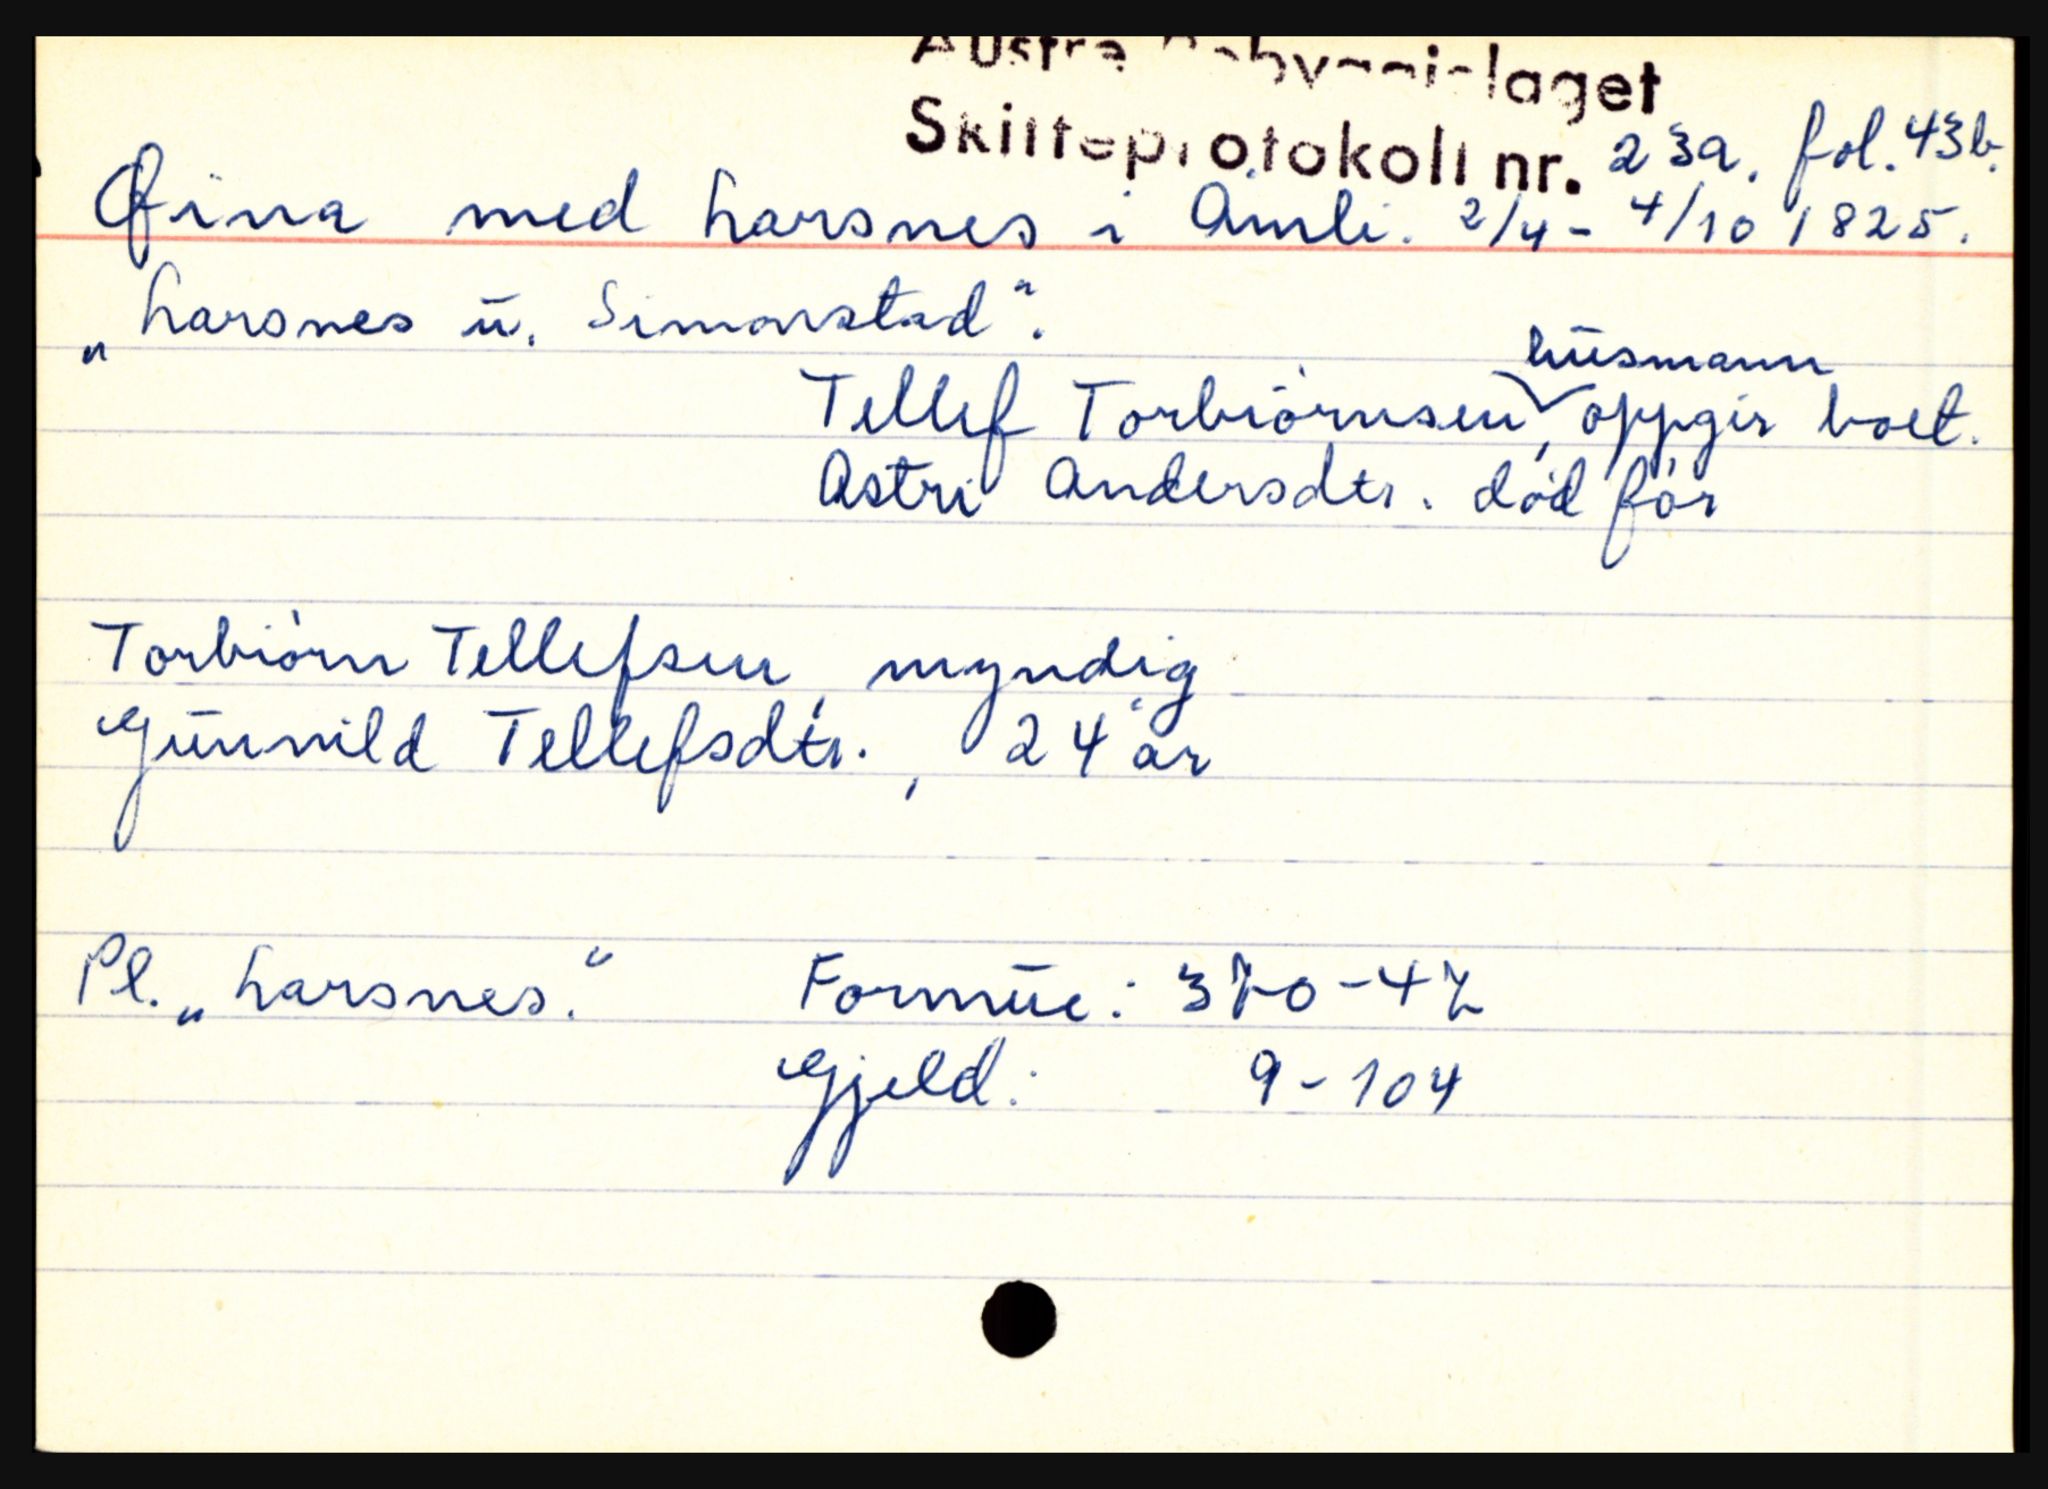 Austre Råbyggjelaget
Skifteprotokoll nr. 23a. fol. 43b.
Øina med Larsnes i Åmli. 2/4 - 4/10 1825.
„Larsnes u. Simonstad“.
husmann
Tellef Torbiørnsen, oppgir boet.
Astri Andersdtr. død før
Torbiørn Tellefsen, myndig
Gunnild Tellefsdtr., 24 år
Pl. „Larsnes.“ Formue: 370-47
Gjeld: 9-104